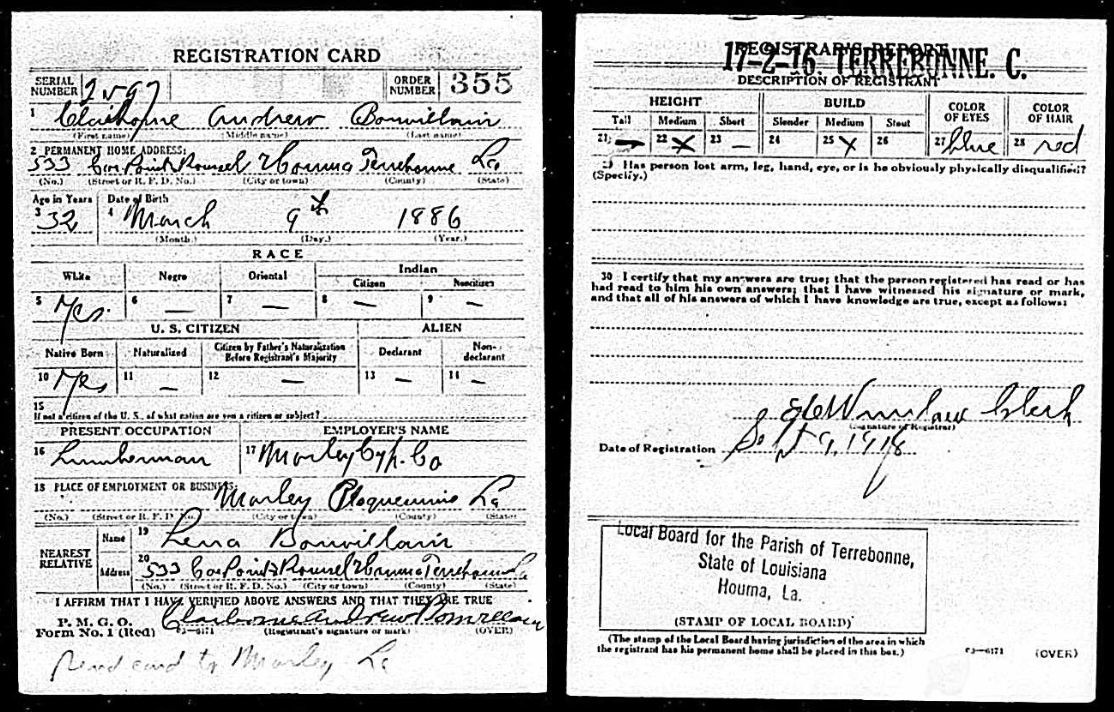 REGISTRATION CARD
SERIAL NUMBER 2597 ORDER NUMBER 355
1 Claiborne Andrew Bonvillain
(First name) (Middle name) (Last name)
2 PERMANENT HOME ADDRESS:
533 Cor Point & Roussel Houma Terrebonne La
(No.) (Street or R. F. D. No.) (City or town) (County) (State)
Age in Years Date of Birth
3 32 4 March 9th 1886
(Month.) (Day.) (Year.)
RACE
White Negro Oriental Indian
Citizen Noncitizen
5 Yes. 6 — 7 — 8 — 9 —
U. S. CITIZEN ALIEN
Native Born Naturalized Citizen by Father's Naturalization Before Registrant's Majority Declarant Non-declarant
10 Yes 11 — 12 — 13 — 14 —
15
If not a citizen of the U. S., of what nation are you a citizen or subject?
PRESENT OCCUPATION EMPLOYER'S NAME
16 Lumberman 17 Morley Cyp. Co
18 PLACE OF EMPLOYMENT OR BUSINESS:
Morley Plaquemine La
(No.) (Street or R. F. D. No.) (City or town) (County) (State)
NEAREST RELATIVE Name 19 Lena Bonvillain
Address 20 533 Cor Point & Roussel Houma Terrebonne La
(No.) (Street or R. F. D. No.) (City or town) (County) (State)
I AFFIRM THAT I HAVE VERIFIED ABOVE ANSWERS AND THAT THEY ARE TRUE
P. M. G. O.
Form No. 1 (Red) 03—6171 Claiborne Andrew Bonvillain
(Registrant's signature or mark) (OVER)
Send card to Morley La
REGISTRAR'S REPORT
17-2-16. TERREBONNE. C.
DESCRIPTION OF REGISTRANT
HEIGHT BUILD COLOR OF EYES COLOR OF HAIR
Tall Medium Short Slender Medium Stout
21 — 22 X 23 — 24 25 X 26 27 blue 28 red
29 Has person lost arm, leg, hand, eye, or is he obviously physically disqualified?
(Specify.)
30 I certify that my answers are true; that the person registered has read or has
had read to him his own answers; that I have witnessed his signature or mark,
and that all of his answers of which I have knowledge are true, except as follows:
Winslow Clerk
(Signature of Registrar)
Date of Registration Sept 9, 1918
Local Board for the Parish of Terrebonne,
State of Louisiana
Houma, La.
(STAMP OF LOCAL BOARD)
(The stamp of the Local Board having jurisdiction of the area in which
the registrant has his permanent home shall be placed in this box.)
03—6171 (OVER)